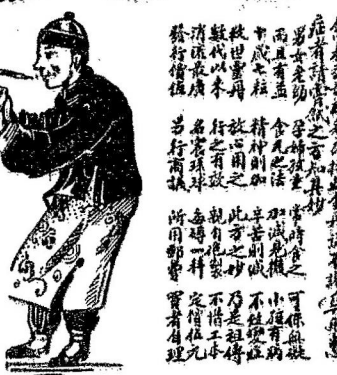 症者請嘗試之方知其妙
男女老幼 孕婦孩童 常時食之 可保無礙
而且有益 食之之法 加減見機 小孩有病
十歲七粒 精神則加 辛苦則減 不使變症
救世靈丹 放心用之 此方之妙 乃是祖傳
數代以來 行之有效 親自泡製 不惜工本
消流最廣 每磅一料 定價伍元
發行價值 另行商議 所用郵費 買者自理